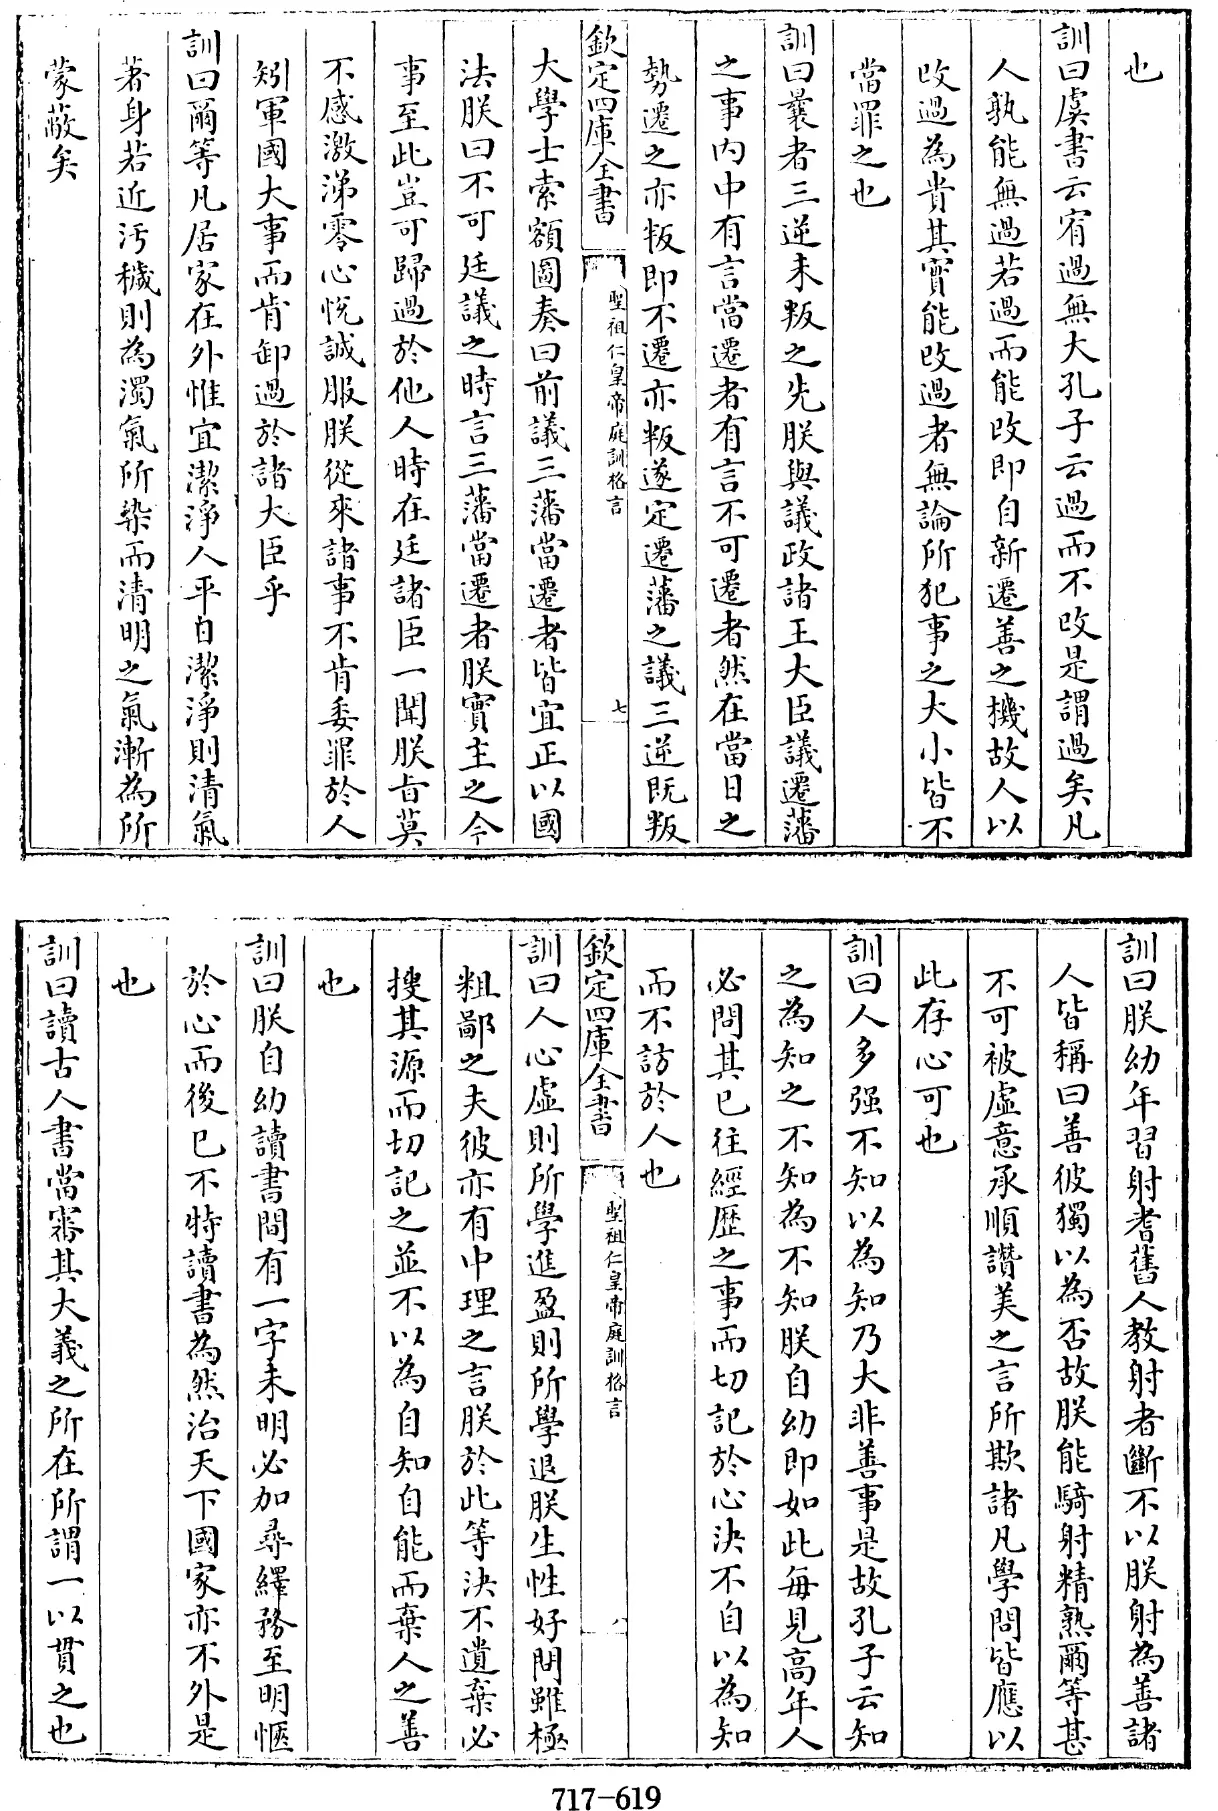 也
訓曰虞書云宥過無大孔子云過而不改是謂過矣凡
人孰能無過若過而能改即自新遷善之機故人以
改過為貴其實能改過者無論所犯事之大小皆不
當罪之也
訓曰曩者三逆未叛之先朕與議政諸王大臣議遷藩
之事内中有言當遷者有言不可遷者然在當日之
勢遷之亦叛即不遷亦叛遂定遷藩之議三逆既叛
欽定四庫全書
聖祖仁皇帝庭訓格言
七
大學士索額圖奏曰前議三藩當遷者皆宜正以國
法朕曰不可廷議之時言三藩當遷者朕實主之今
事至此豈可歸過於他人時在廷諸臣一聞朕旨莫
不感激涕零心悅誠服朕從來諸事不肯委罪於人
矧軍國大事而肯卸過於諸大臣乎
訓曰爾等凡居家在外惟宜潔淨人平日潔淨則清氣
著身若近汚穢則為濁氣所染而清明之氣漸為所
蒙蔽矣
訓曰朕幼年習射耆舊人教射者斷不以朕射為善諸
人皆稱曰善彼獨以為否故朕能騎射精熟爾等甚
不可被虛意承順讚美之言所欺諸凡學問皆應以
此存心可也
訓曰人多强不知以為知乃大非善事是故孔子云知
之為知之不知為不知朕自幼即如此每見高年人
必問其已往經歷之事而切記於心決不自以為知
而不訪於人也
欽定四庫全書
聖祖仁皇帝庭訓格言
八
訓曰人心虛則所學進盈則所學退朕生性好問雖極
粗鄙之夫彼亦有中理之言朕於此等決不遺棄必
搜其源而切記之並不以為自知自能而棄人之善
也
訓曰朕自幼讀書間有一字未明必加尋繹務至明愜
於心而後已不特讀書為然治天下國家亦不外是
也
訓曰讀古人書當審其大義之所在所謂一以貫之也
717-619